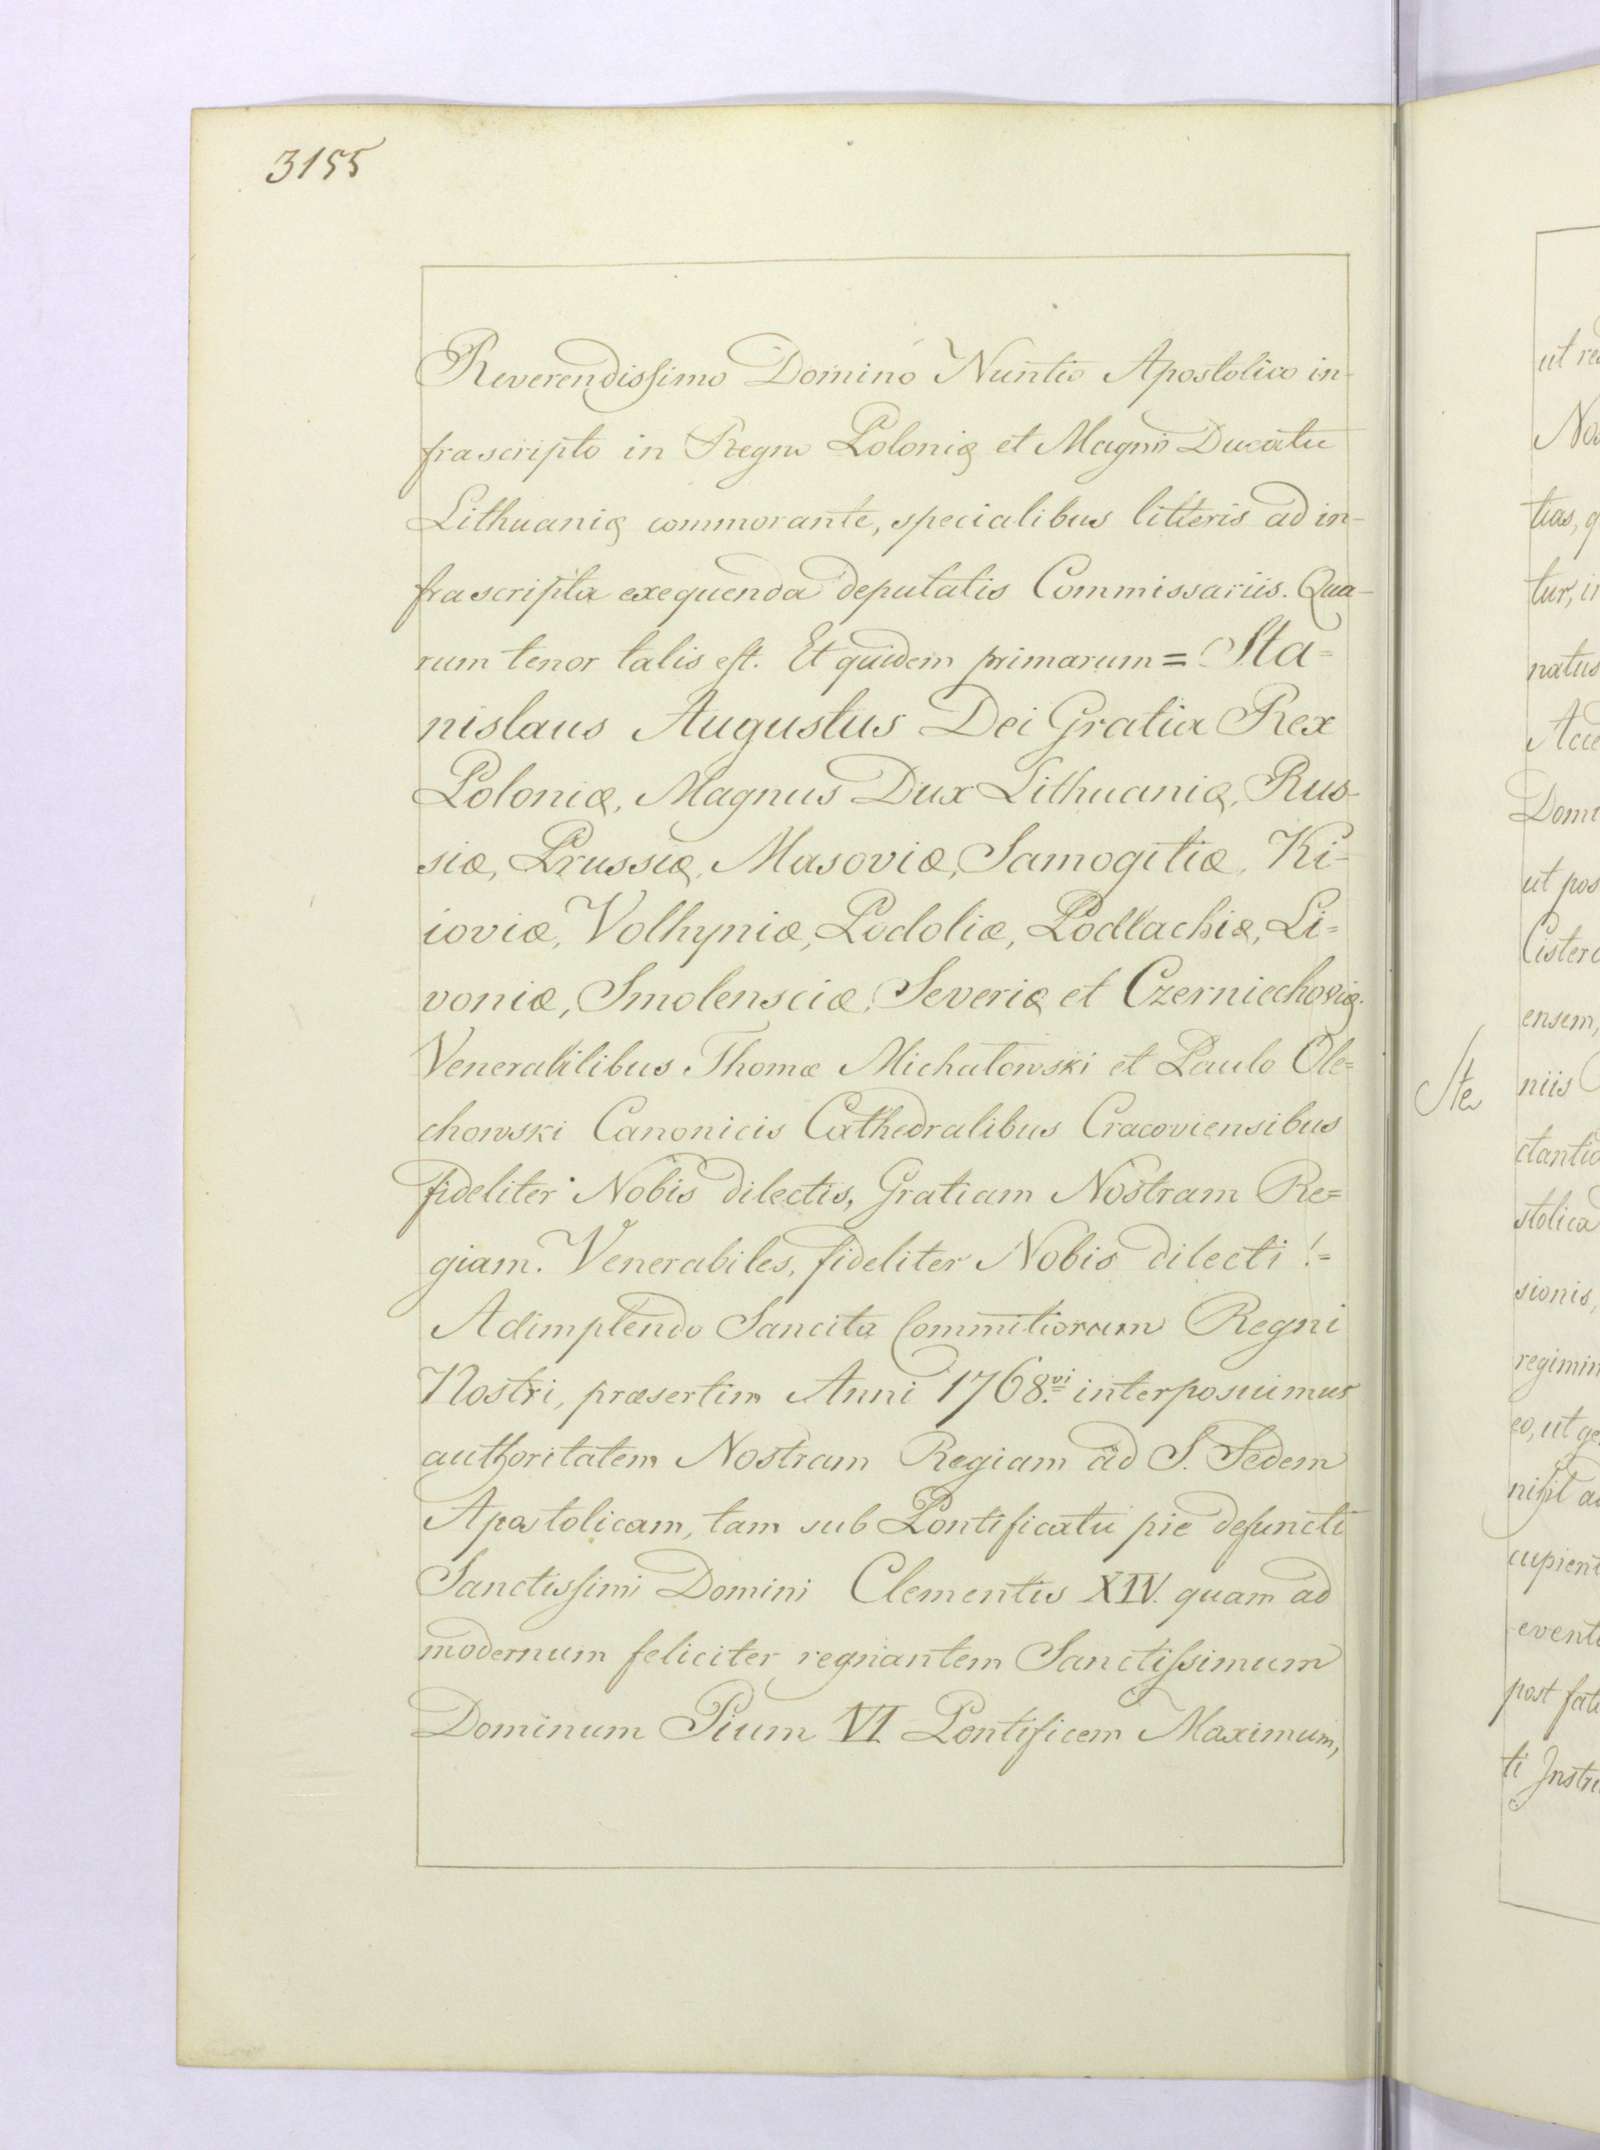 3155
Reverendissimo Domino Nuntio Apostolico in-
frascripto in Regno Poloniæ et Magno Ducatu
Lithuaniæ commorante, specialibus litteris ad in-
frascripta exequenda deputatis Commissariis. Qua-
rum tenor talis est. Et quidem primarum = Sta=
nislaus Augustus Dei Gratia Rex
Poloniæ, Magnus Dux Lithuaniæ, Rus-
siæ, Prussiæ, Masoviæ, Samogitiæ, Ki=
ioviæ, Volhyniæ, Podoliæ, Podlachiæ, Li=
voniæ, Smolensciæ, Severiæ et Czerniechoviæ.
Venerabilibus Thomæ Michałowski et Paulo Ole=
chowski Canonicis Cathedralibus Cracoviensibus
fideliter Nobis dilectis, Gratiam Nostram Re=
giam. Venerabiles, fideliter Nobis dilecti!=
Adimplendo Sancita Commitiorum Regni
Nostri, præsertim Anni 1768.vi interposuimus
authoritatem Nostram Regiam ad S. Sedem
Apostolicam, tam sub Pontificatu pie defuncti
Sanctissimi Domini Clementis XIV. quam ad
modernum feliciter regnantem Sanctissimum
Dominum Pium VI Pontificem Maximum,
ut
tias,
tur,
natus
ut
Cister
ensem,
niis
stolica
sionis,
eo, ut
nihil
post
ti